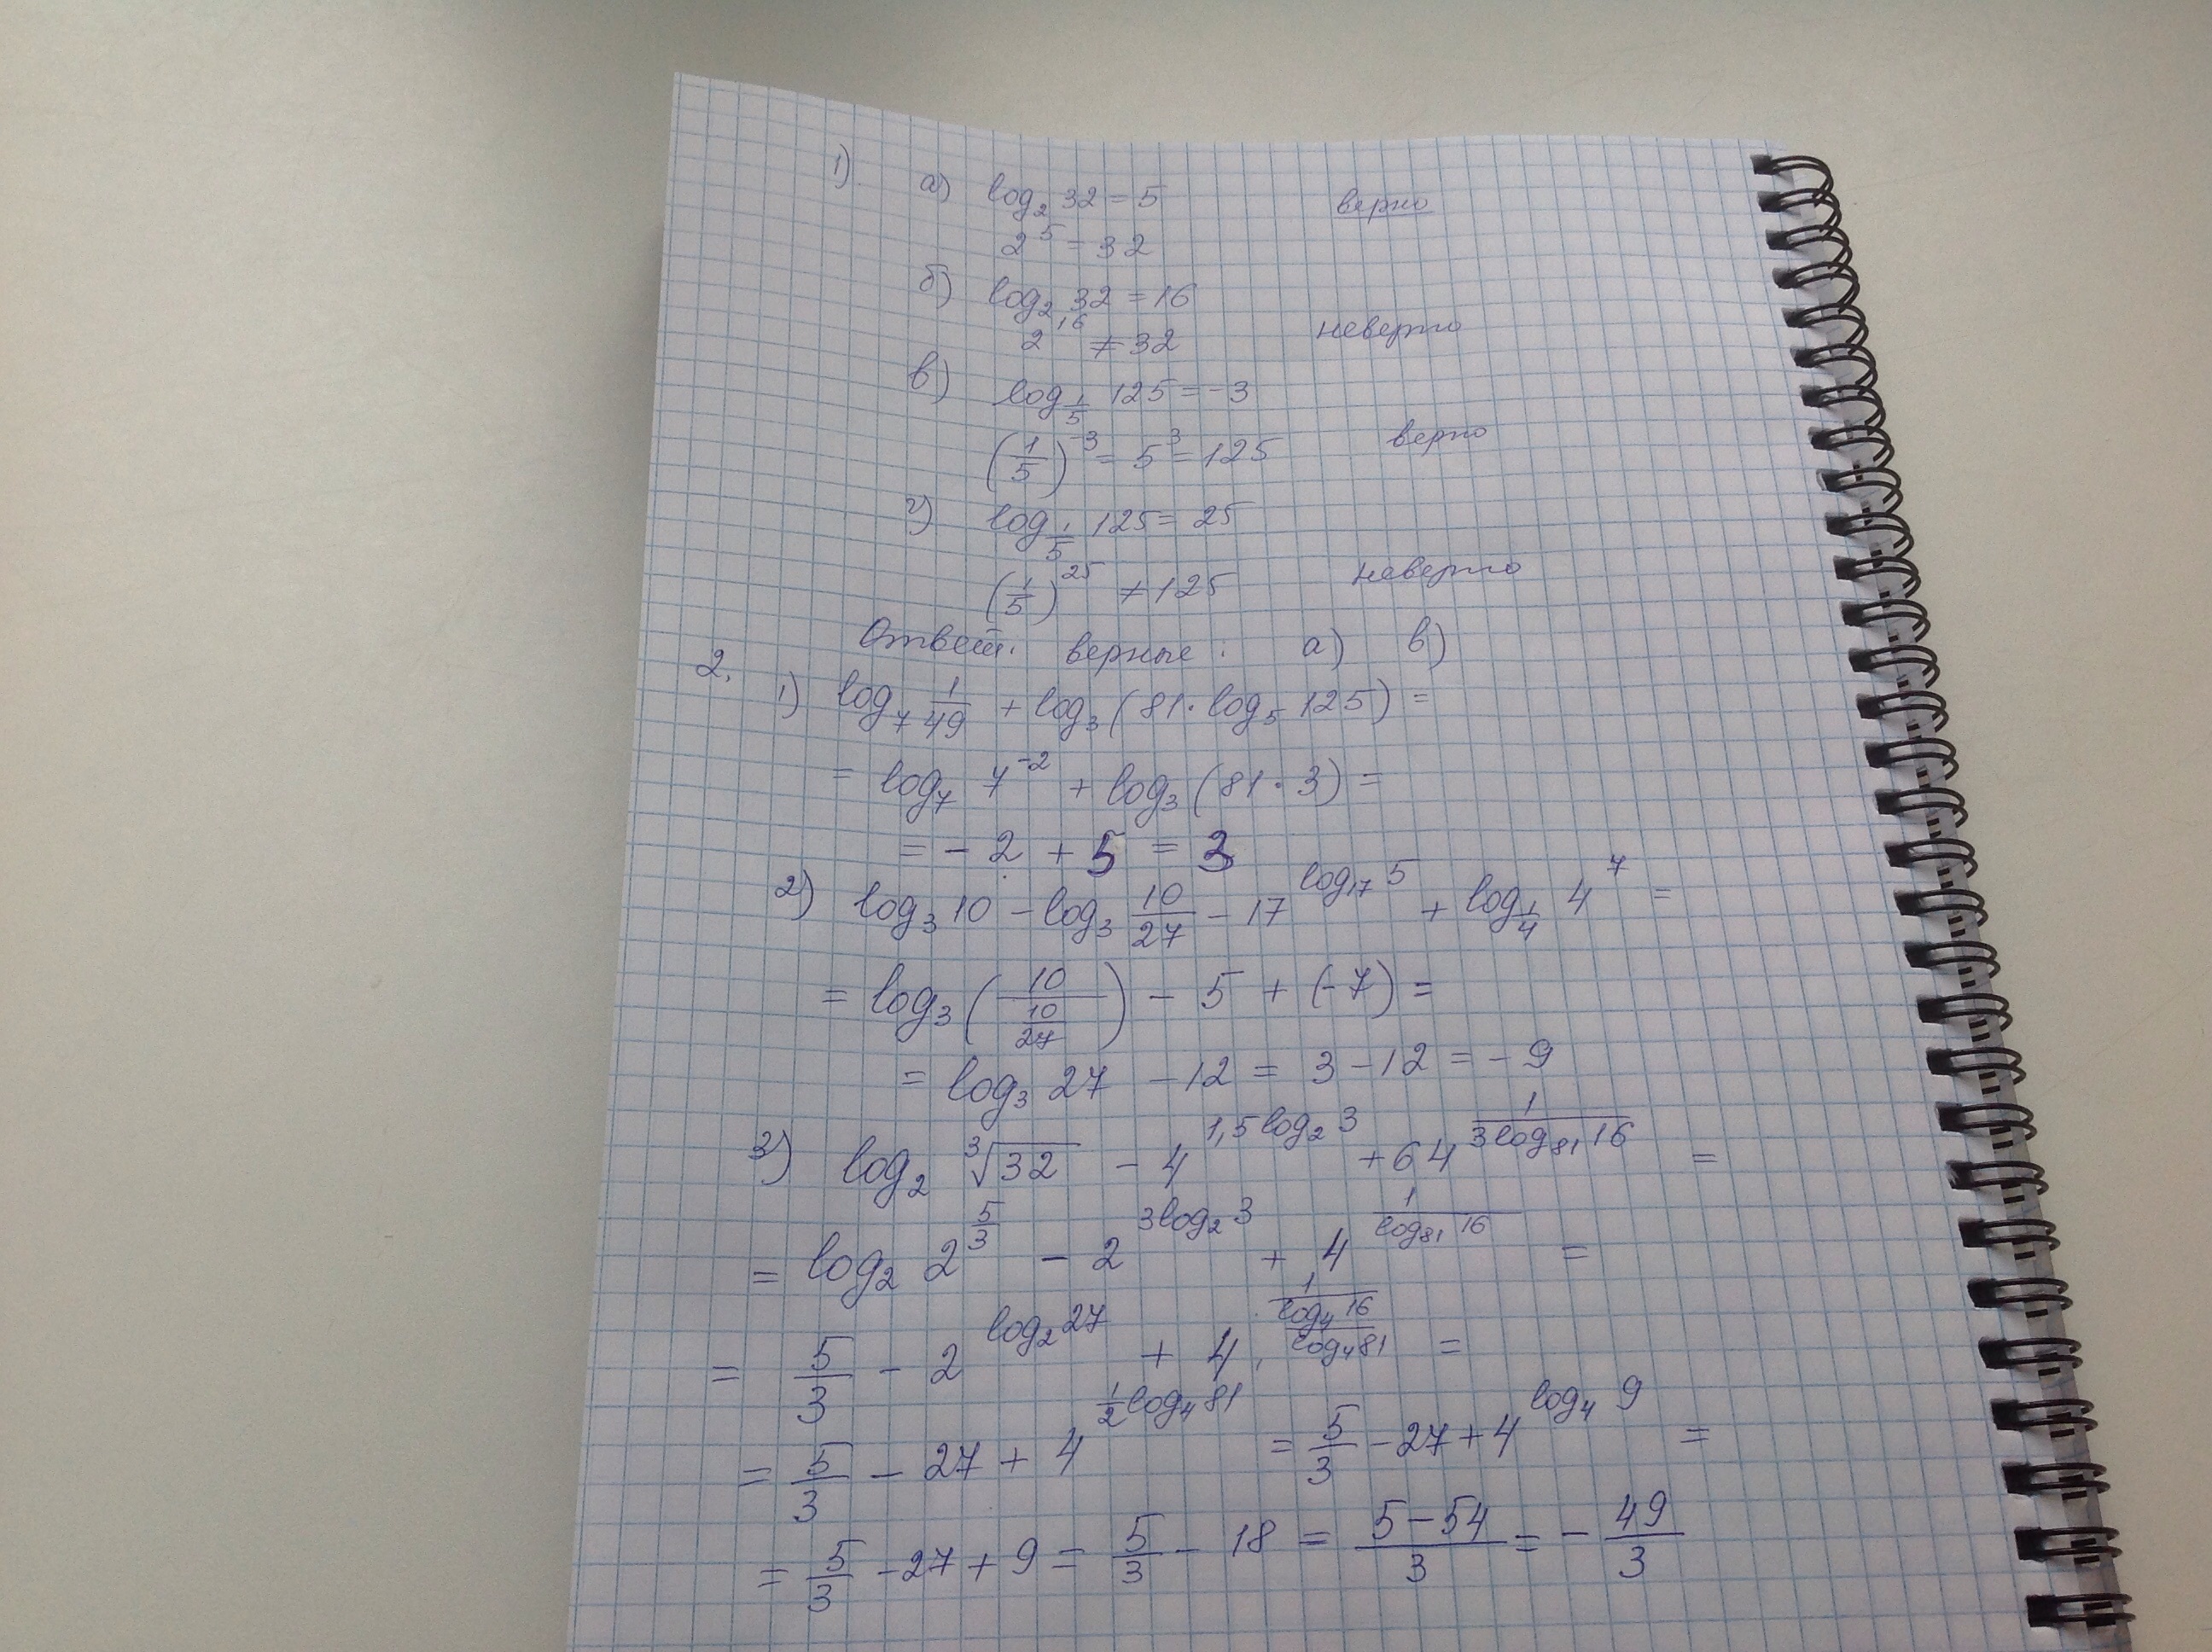 1) а) log₂ 32 = 5 верно
2⁵ = 32
б) log₂ 32 = 16
2¹⁶ ≠ 32 неверно
в) log_{1/5} 125 = -3
(1/5)⁻³ = 5³ = 125 верно
г) log_{1/5} 125 = 25
(1/5)²⁵ ≠ 125 неверно
Ответ: верные: а) в)
2. 1) log₇ 1/49 + log₃ (81 · log₅ 125) =
= log₇ 7⁻² + log₃ (81 · 3) =
= - 2 + 5 = 3
2) log₃ 10 - log₃ 10/27 - 17^{log₁₇ 5} + log_{1/4} 4⁷ =
= log₃ (10/(10/27)) - 5 + (-7) =
= log₃ 27 - 12 = 3 - 12 = - 9
3) log₂ ∛32 - 4^{1,5 log₂ 3} + 64^{1/(3 log₈₁ 16)} =
= log₂ 2^{5/3} - 2^{3 log₂ 3} + 4^{1/(log₈₁ 16)} =
= 5/3 - 2^{log₂ 27} + 4^{1/(log₄ 16/log₄ 81)} =
= 5/3 - 27 + 4^{1/2 log₄ 81} = 5/3 - 27 + 4^{log₄ 9} =
= 5/3 - 27 + 9 = 5/3 - 18 = (5 - 54)/3 = - 49/3